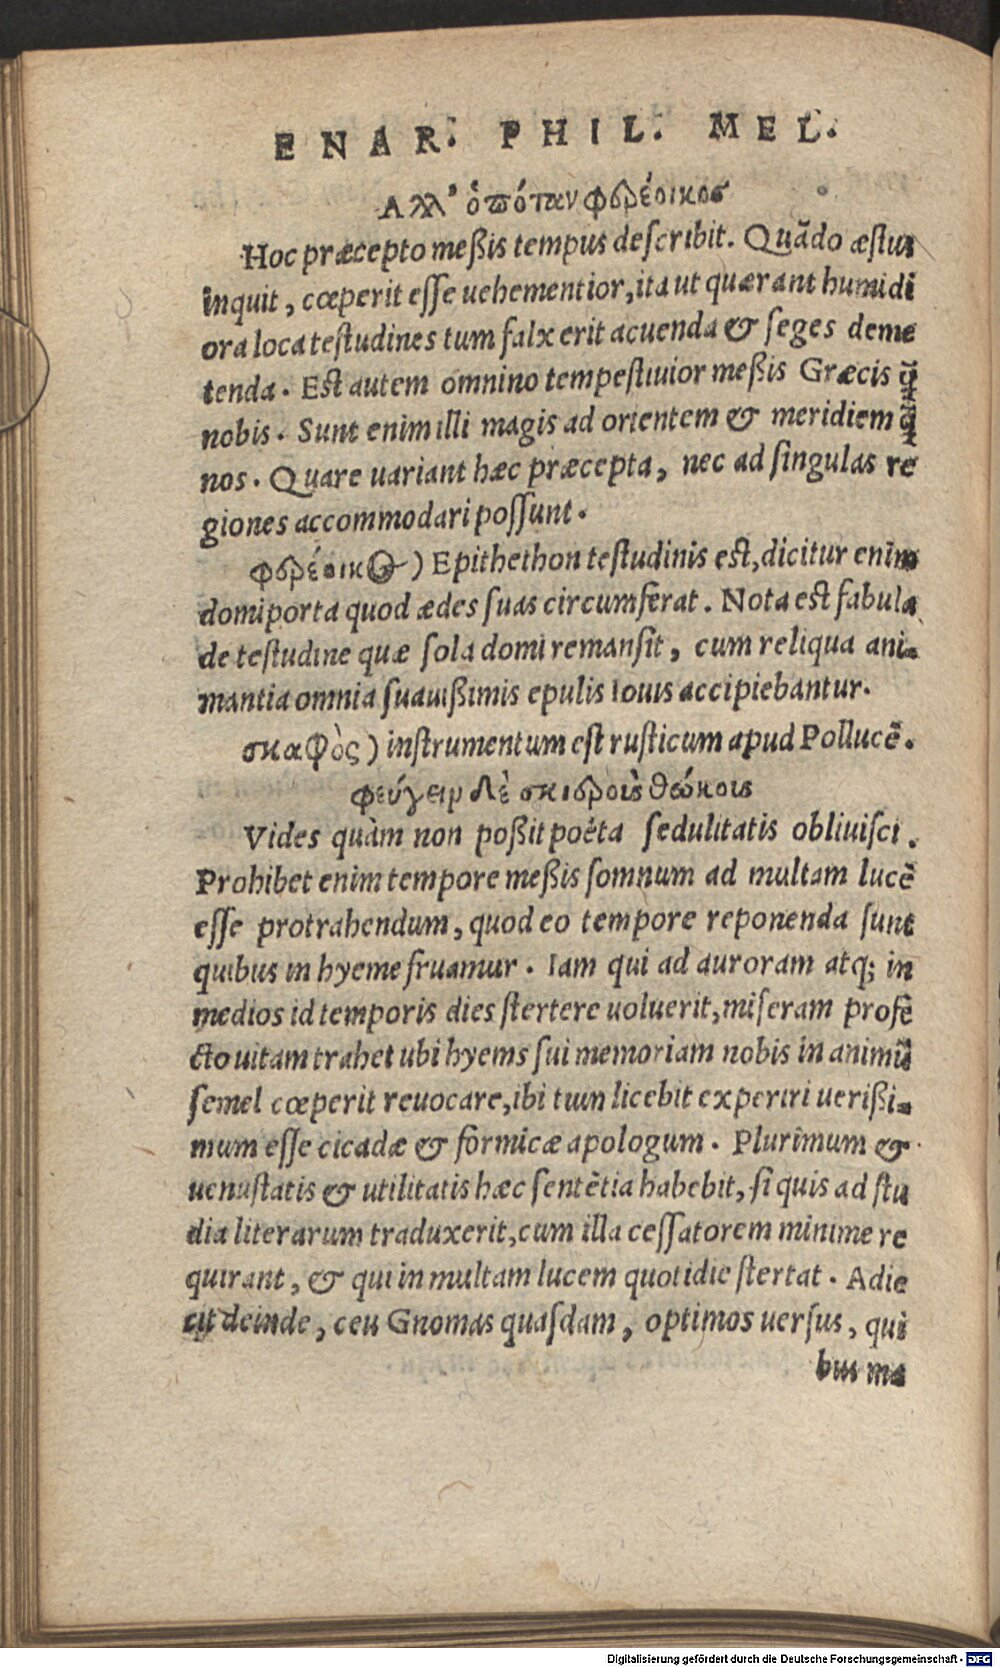 ENAR. PHIL. MEL.
Αλλ' ὁπόταν φερέοικος
Hoc præcepto meßis tempus describit. Quādo æstus
inquit, cœperit esse uehementior, ita ut quærant humidi
ora loca testudines tum falx erit acuenda & seges deme
tenda. Est autem omnino tempestiuior meßis Græcis q̄
nobis. Sunt enim illi magis ad orientem & meridiem q̄
nos. Quare uariant hæc præcepta, nec ad singulas re
giones accommodari possunt.
φερέοικος) Epithethon testudinis est, dicitur enim
domiporta quod ædes suas circumferat. Nota est fabula
de testudine quæ sola domi remansit, cum reliqua ani-
mantia omnia suauißimis epulis Iouis accipiebantur.
σκαφὸς) instrumentum est rusticum apud Pollucē.
φεύγειν δὲ σκιεροὶς θώκοις
Vides quàm non poßit poëta sedulitatis obliuisci.
Prohibet enim tempore meßis somnum ad multam lucē
esse protrahendum, quod eo tempore reponenda sunt
quibus in hyeme fruamur. Iam qui ad auroram atq; in
medios id temporis dies stertere uoluerit, miseram profe
cto uitam trahet ubi hyems sui memoriam nobis in animū
semel cœperit reuocare, ibi tum licebit experiri uerißi-
mum esse cicadæ & formicæ apologum. Plurimum &
uenustatis & utilitatis hæc sentētia habebit, si quis ad stu
dia literarum traduxerit, cum illa cessatorem minime re
quirant, & qui in multam lucem quotidie stertat. Adie
cit deinde, ceu Gnomas quasdam, optimos uersus, qui
bus ma
Digitalisierung gefördert durch die Deutsche Forschungsgemeinschaft - DFG